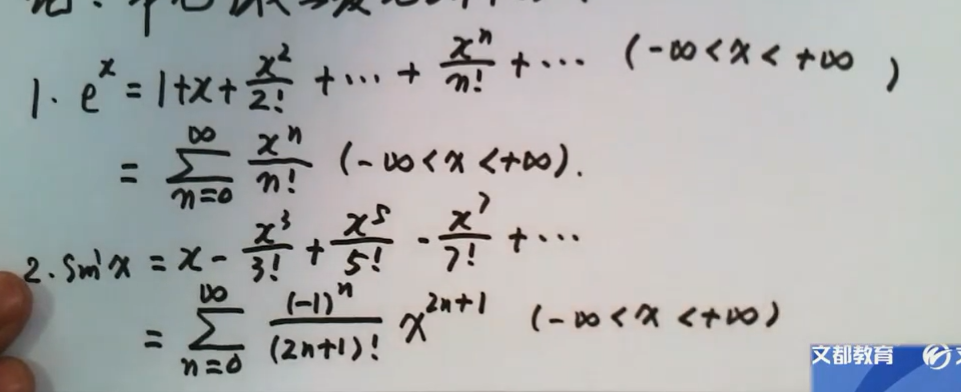 1. e^x = 1+x+\frac{x^2}{2!} + ⋯ + \frac{x^n}{n!} + ⋯ (-∞<x<+∞)
= \sum_{n=0}^{∞} \frac{x^n}{n!} (-∞<x<+∞).
2. sin x = x - \frac{x^3}{3!} + \frac{x^5}{5!} - \frac{x^7}{7!} + ⋯
= \sum_{n=0}^{∞} \frac{(-1)^n}{(2n+1)!} x^{2n+1} (-∞<x<+∞)
文都教育